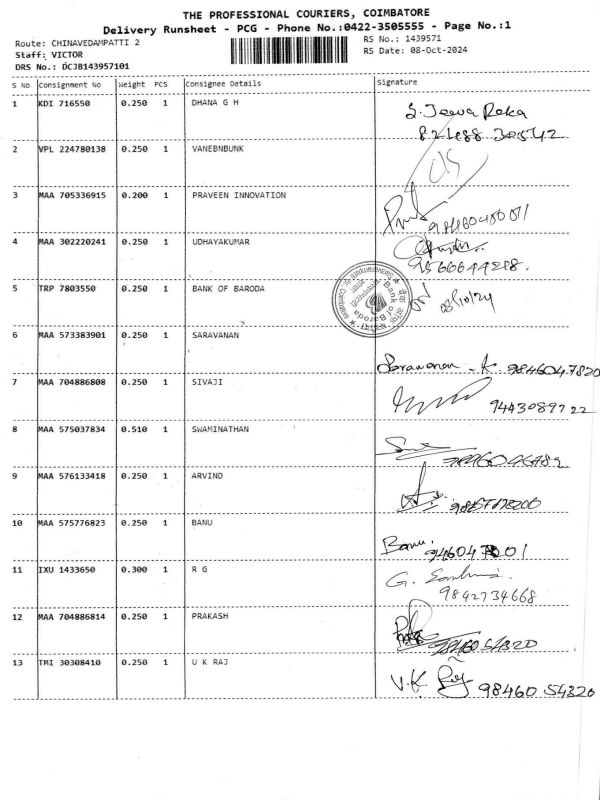 THE PROFESSIONAL COURIERS, COIMBATORE
Delivery Runsheet - PCG - Phone No.:0422-3505555 - Page No.:1
Route: CHINAVEDAMPATTI 2
RS No.: 1439571
Staff: VICTOR
RS Date: 08-Oct-2024
DRS No.: DCJB143957101
S No Consignment No Weight PCS Consignee Details Signature
1 KDI 716550 0.250 1 DHANA G H
S. Jeeva Reka
2 VPL 224780138 0.250 1 VANEBNBUNK
3 MAA 705336915 0.200 1 PRAVEEN INNOVATION
4 MAA 302220241 0.250 1 UDHAYAKUMAR
9566644218.
5 TRP 7803550 0.250 1 BANK OF BARODA
Bank of Baroda
08/10/24
6 MAA 573383901 0.250 1 SARAVANAN
Saravanan . K 9846047820
7 MAA 704886808 0.250 1 SIVAJI
9443089722
8 MAA 575037834 0.510 1 SWAMINATHAN
9 MAA 576133418 0.250 1 ARVIND
10 MAA 575776823 0.250 1 BANU
Banu.
11 IXU 1433650 0.300 1 R G
9842734668
12 MAA 704886814 0.250 1 PRAKASH
9846054320
13 TMI 30308410 0.250 1 U K RAJ
V.K Raj 9846054320